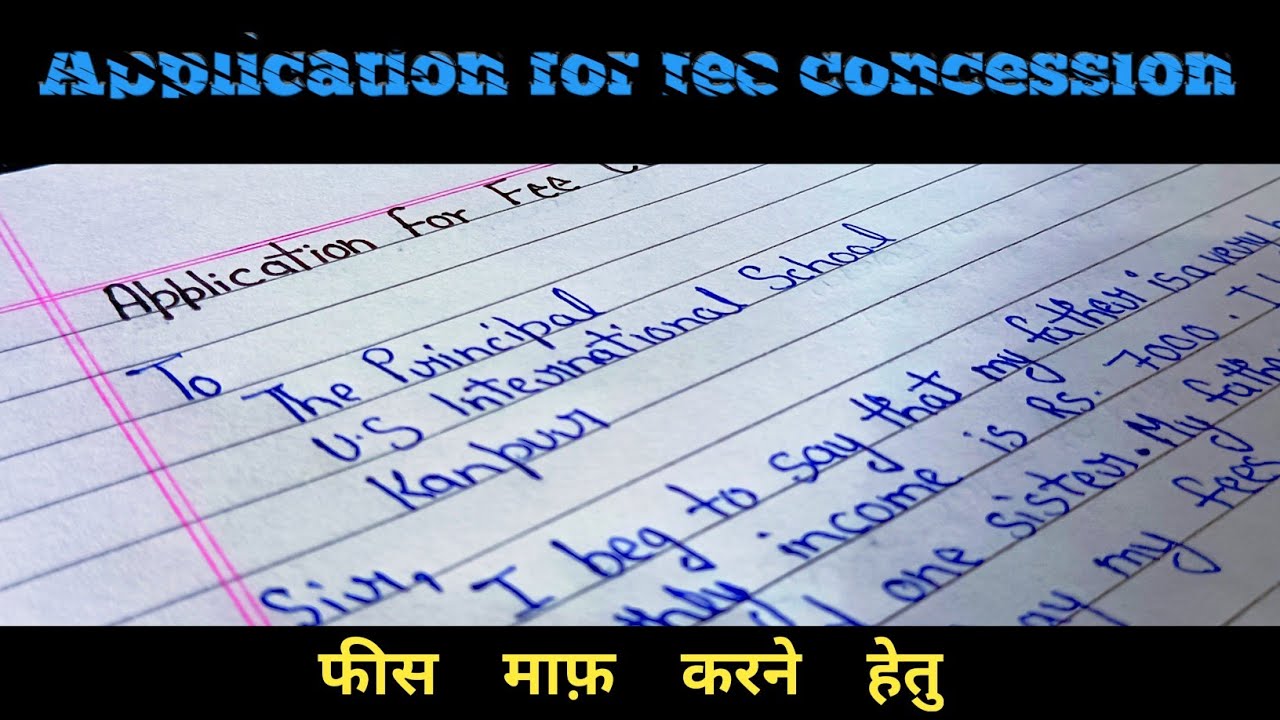 Application for fee concession
Application For Fee
To
The Principal
U.S International School
Kanpur
Sir,
I beg to say that my father is a very
income is Rs. 7000. I
one sister. My
my fees
फीस माफ़ करने हेतु